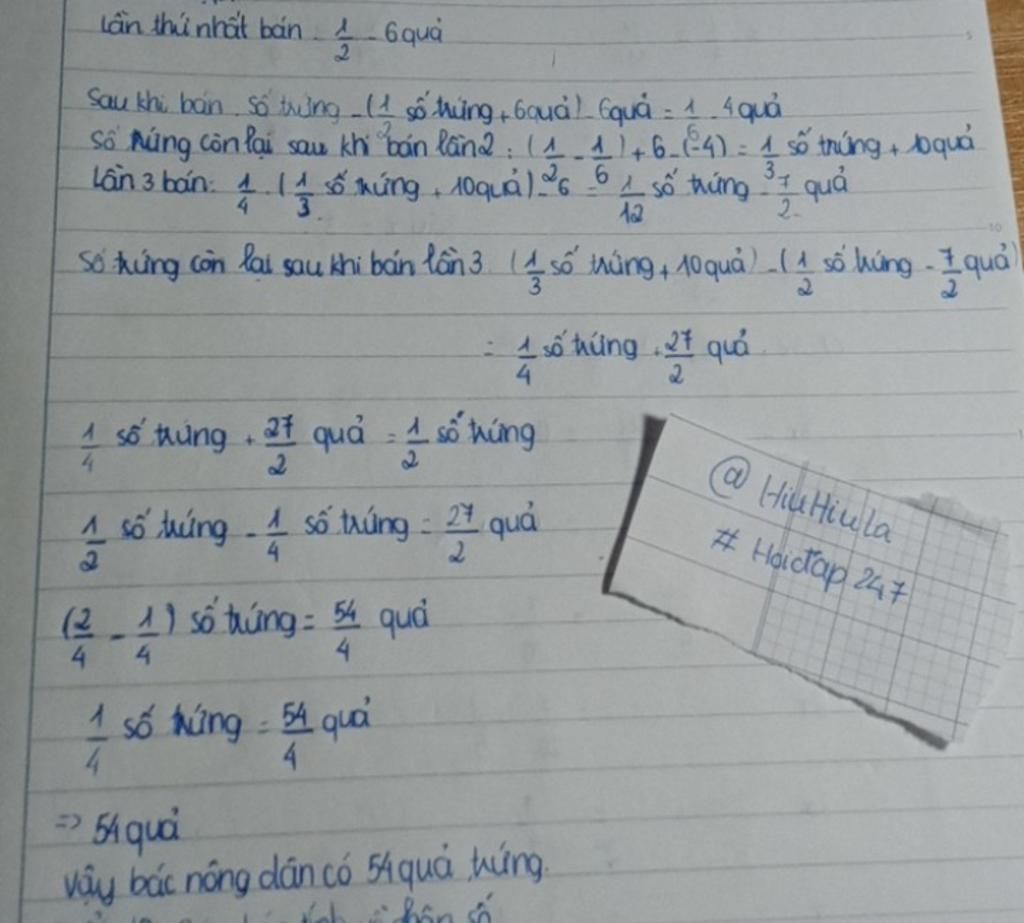 Lần thứ nhất bán 1/2 - 6 quả
Sau khi bán số trứng - (1/2 số trứng + 6 quả) - 6 quả = 1/6 - 4 quả
Số trứng còn lại sau khi bán lần 2 : (1/2 - 1/6) + 6 - (-4) = 1/3 số trứng + 10 quả
Lần 3 bán: 1/4 . (1/3 số trứng + 10 quả) - 6 = 1/12 số trứng - 7/2 quả
Số trứng còn lại sau khi bán lần 3 (1/3 số trứng + 10 quả) - (1/2 số trứng - 7/2 quả)
= 1/4 số trứng + 27/2 quả
1/4 số trứng + 27/2 quả = 1/2 số trứng
1/2 số trứng - 1/4 số trứng = 27/2 quả
(2/4 - 1/4) số trứng = 54/4 quả
1/4 số trứng = 54/4 quả
=> 54 quả
Vậy bác nông dân có 54 quả trứng.
@ HiuHiula
# Hoidap247